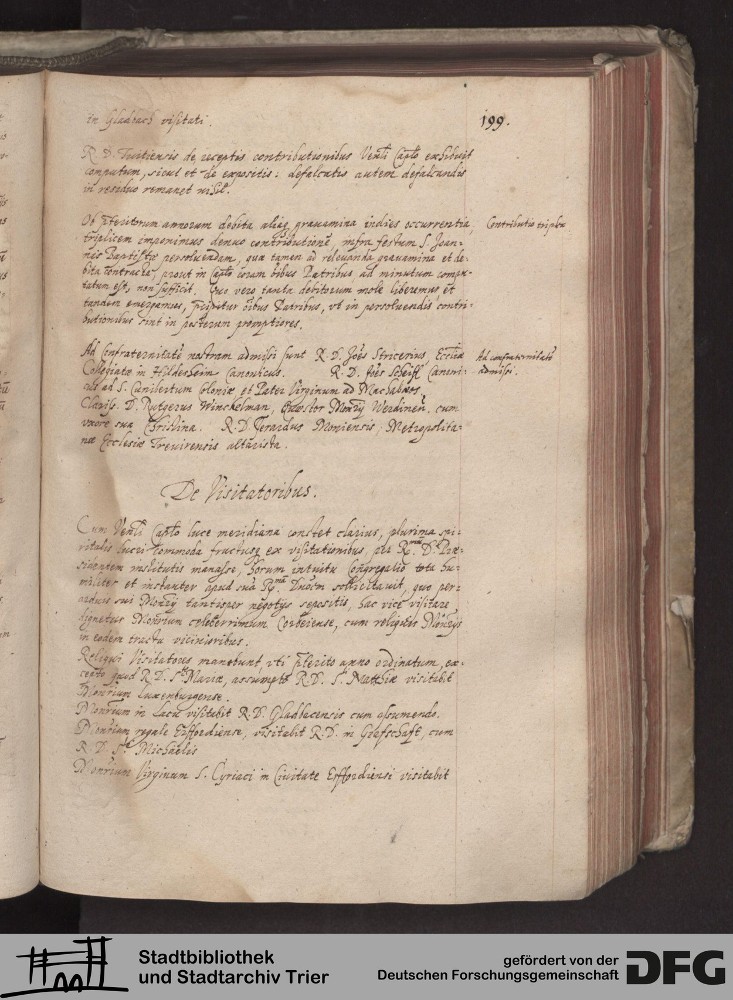 in Gladbach visitati.
199.
R. D. Tuitiensis de receptis contributionibus Ven.li Cap.lo exhibuit
computum, sicut et de expositis: defalcatis autem defalcandis
in residuo remanet nihil.
Ob p̃teritorum annorum debita aliaq. gravamina indies occurrentia,
Contributio tripla
triplicem imponimus denuo contributionẽ, infra festum S. Joan:
nis Baptistæ persolvendam, quæ tamen ad relevanda gravamina et de:
bita contracta, prout in Cap.lo coram õibus Patribus ad minutum compu:
tatum est, non sufficit. Quo vero tanta debitorum mole liberemur et
tandem emergamus, p̃cipitur õibus Patribus, ut in persolvendis contri:
butionibus sint in posterum promptiores.
Ad Confraternitatẽ nostram admissi sunt R. D. Joẽs Stricerius, Ecc̃liæ
Ad confraternitatẽ
admissi.
Collegiatæ in Hildesheim Canonicus. R. D. Joẽs Scheiff Canoni:
cus ad S. Cunibertum Coloniæ et Pater Virginum ad Machabæos.
Clariss. D. Rutgerus Winckelman, Quæstor Monrỹ Werdinen̄, cum
uxore sua Christina. R. D. Gerardus Moniensis, Metropolita:
næ Ecclesiæ Trevirensis altarista.
De Visitatoribus.
Cum Ven.li Cap.lo luce meridiana constet clarius, plurima spi:
ritalis lucri commoda fructusq. ex visitationibus, per R.mum D. Præ:
sidentem institutis manasse, horum intuitu Congregatio tota hu:
militer et instanter apud suã R.mã Dnõem sollicitavit, quo per:
arduis sui Monrỹ tantisper negotijs sepositis, hac vice visitare
dignetur Monr̃ium celeberrimum Corbeiense, cum reliquis Monrỹs
in eodem tractu vicinioribus.
Reliqui Visitatores manebunt, uti p̃terito anno ordinatum, ex:
cepto quod R. D. S.tæ Mariæ, assumpto R. D. S. Matthiæ visitabit
Monr̃ium Luxemburgense.
Monr̃ium in Lacu visitabit R. D. Gladbacensis cum assumendo.
Monr̃ium regale Erffordiense, visitabit R. D. in Grafschaft, cum
R. D. S.ti Michaelis
Monr̃ium Virginum S. Cyriaci in Civitate Erffordiensi visitabit
Stadtbibliothek
und Stadtarchiv Trier
gefördert von der
Deutschen Forschungsgemeinschaft
DFG